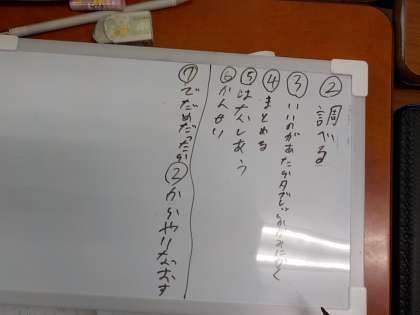 ②調べる
③いいのがあたか夕でしょかくにん
④まとめる
⑤はなしあう
⑥かんせい
⑦でだめだったか
②からやりなおす